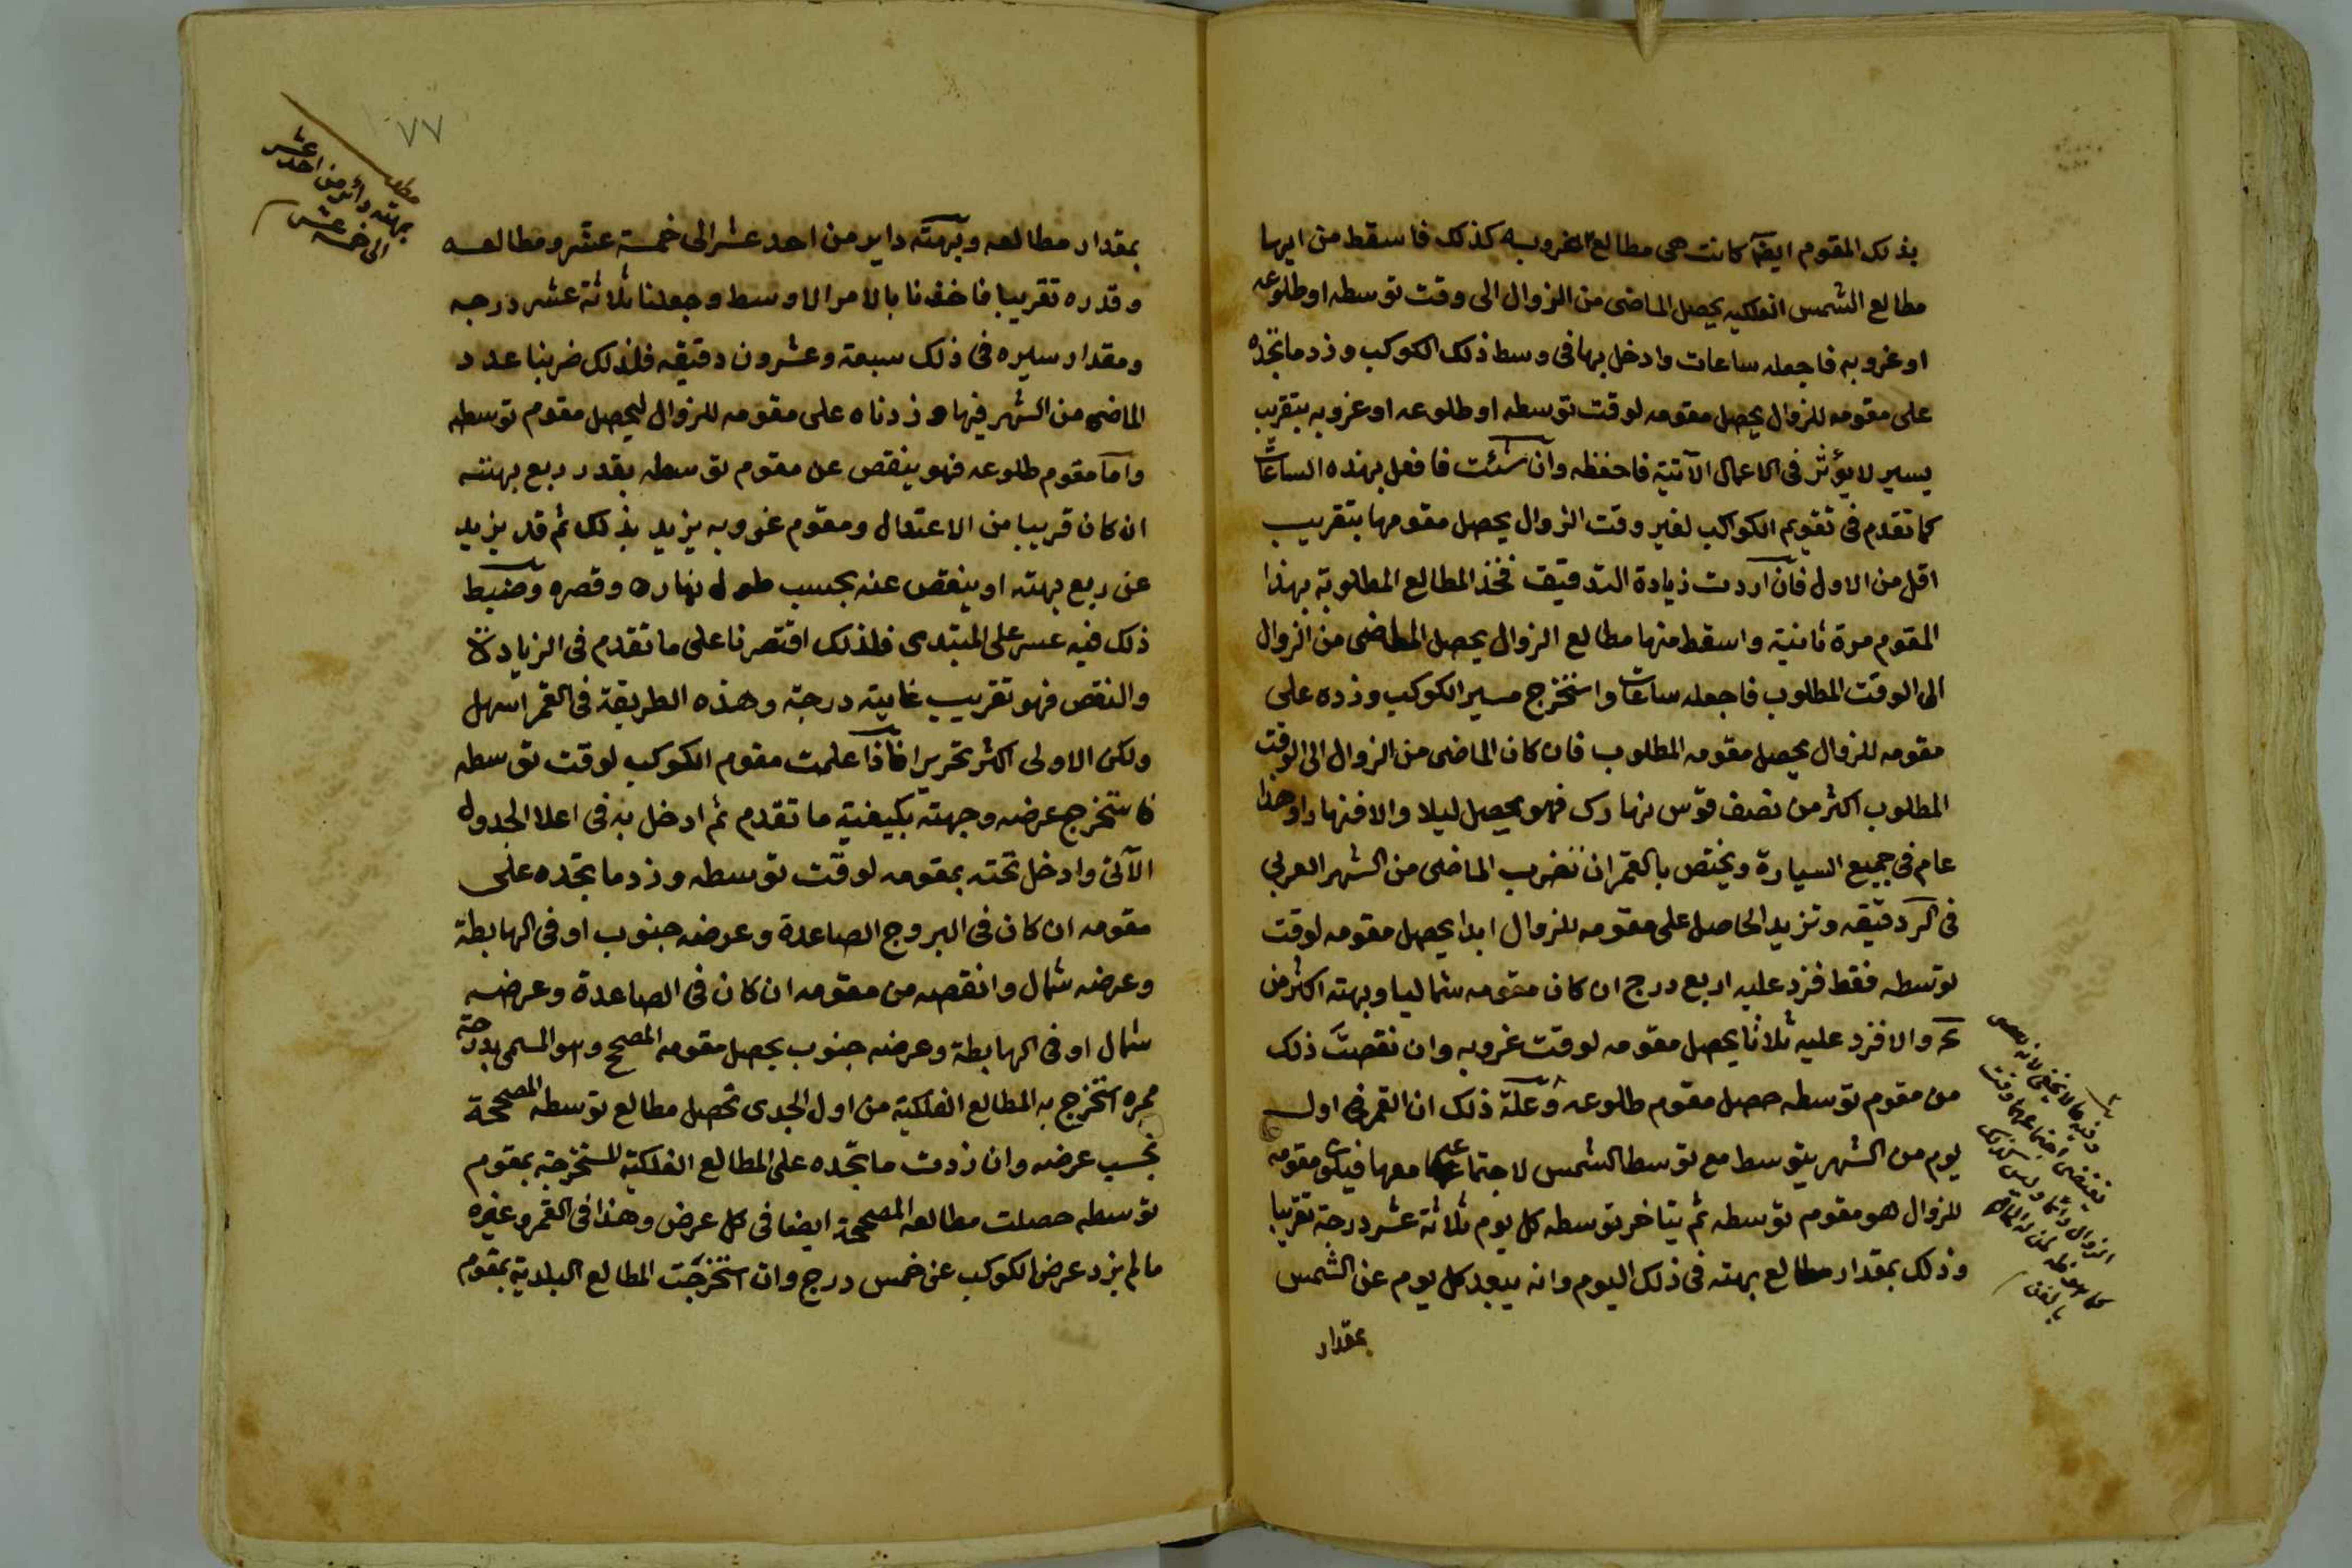 بذلك المقوم ايضا كانت هى مطالع الغروب كذلك فاسقط من ايها
مطالع الشمس الفلكيه يحصل الماضى من الزوال الى وقت توسطه او طلوعه
او غروبه فاجعله ساعات وادخل بها فى وسط ذلك الكوكب وزد ما تجده
على مقومه للزوال يحصل مقومه لوقت توسطه او طلوعه او غروبه بتقريب
يسير لا يؤثر فى الاعمال الآتية فاحفظه وان شئت فافعل بهذه الساعات
كما تقدم فى تقويم الكواكب لغير وقت الزوال يحصل مقومها بتقريب
اقل من الاول فان اردت زيادة التدقيق فخذ المطالع المطلوبة بهذا
المقوم مرة ثانية واسقط منها مطالع الزوال يحصل الماضى من الزوال
الى الوقت المطلوب فاجعله ساعات واستخرج مسير الكوكب وزده على
مقومه للزوال يحصل مقومه المطلوب فان كان الماضى من الزوال الى الوقت
المطلوب اكثر من نصف قوس نهارك فهو يحصل ليلا والا فنهارا وهذا
عام فى جميع السيارة ويختص بالقمر ان تضرب الماضى من الشهر العربى
فى كر دقيقه وتزيد الحاصل على مقومه للزوال ابدا يحصل مقومه لوقت
توسطه فقط فزد عليه اربع درج ان كان مقومه شماليا وبهته اكثر من
والا فزد عليه ثلاثا يحصل مقومه لوقت غروبه وان نقصت ذلك
من مقوم توسطه حصل مقوم طلوعه وعلة ذلك ان القمر فى اول
يوم من الشهر يتوسط مع توسط الشمس لاجتماعه معها فيكون مقومه
للزوال هو مقوم توسطه ثم يتاخر توسطه كل يوم ثلاثة عشر درجة تقريبا
وذلك بمقدار مطالع بهته فى ذلك اليوم وانه يبعد كل يوم عن الشمس
بمقدار
٧٧
بهته دائر من احد عشر
الى خمسة عشر
بمقدار مطالعه وبهته داير من احد عشر الى خمسة عشر ومطالعه
وقدره تقريبا فاخذنا بالامر الاوسط وجعلنا ثلاثة عشر درجه
ومقدار سيره فى ذلك سبعة وعشرون دقيقه فلذلك ضربنا عدد
الماضى من الشهر فيها وزدناه على مقومه للزوال ليحصل مقوم توسطه
واما مقوم طلوعه فهو ينقص عن مقوم توسطه بقدر ربع بهته
ان كان قريبا من الاعتدال ومقوم غروبه يزيد بذلك ثم قد يزيد
عن ربع بهته او ينقص عنه بحسب طول نهاره وقصره وضبط
ذلك فيه عسر على المبتدى فلذلك اقتصرنا على ما تقدم فى الزيادة
والنقص فهو تقريب غايته درجة وهذه الطريقة فى القمر اسهل
ولكن الاولى اكثر تحريرا فاذا علمت مقوم الكوكب لوقت توسطه
فاستخرج عرضه وجهته بكيفية ما تقدم ثم ادخل به فى اعلا الجدول
الآتى وادخل تحته بمقومه لوقت توسطه وزد ما تجده على
مقومه ان كان فى البروج الصاعدة وعرضه جنوب او فى الهابطة
وعرضه شمال وانقصه من مقومه ان كان فى الصاعدة وعرضه
شمال او فى الهابطة وعرضه جنوب يحصل مقومه المصحح وهو المسمى بدرجة
ممره استخرج به المطالع الفلكية من اول الجدى تحصل مطالع توسطه المصححة
بحسب عرضه وان زدت ما تجده على المطالع الفلكية المستخرجة بمقوم
توسطه حصلت مطالعه المصححة ايضا فى كل عرض وهذا فى القمر وغيره
ما لم يزد عرض الكوكب عن خمس درج وان استخرجت المطالع البلدية بمقوم